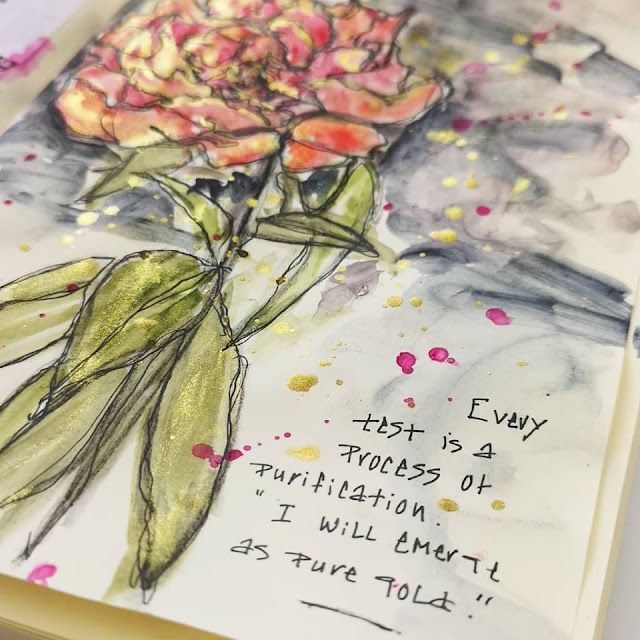 Every
test is a
process of
purification.
"I will emerge
as pure gold."